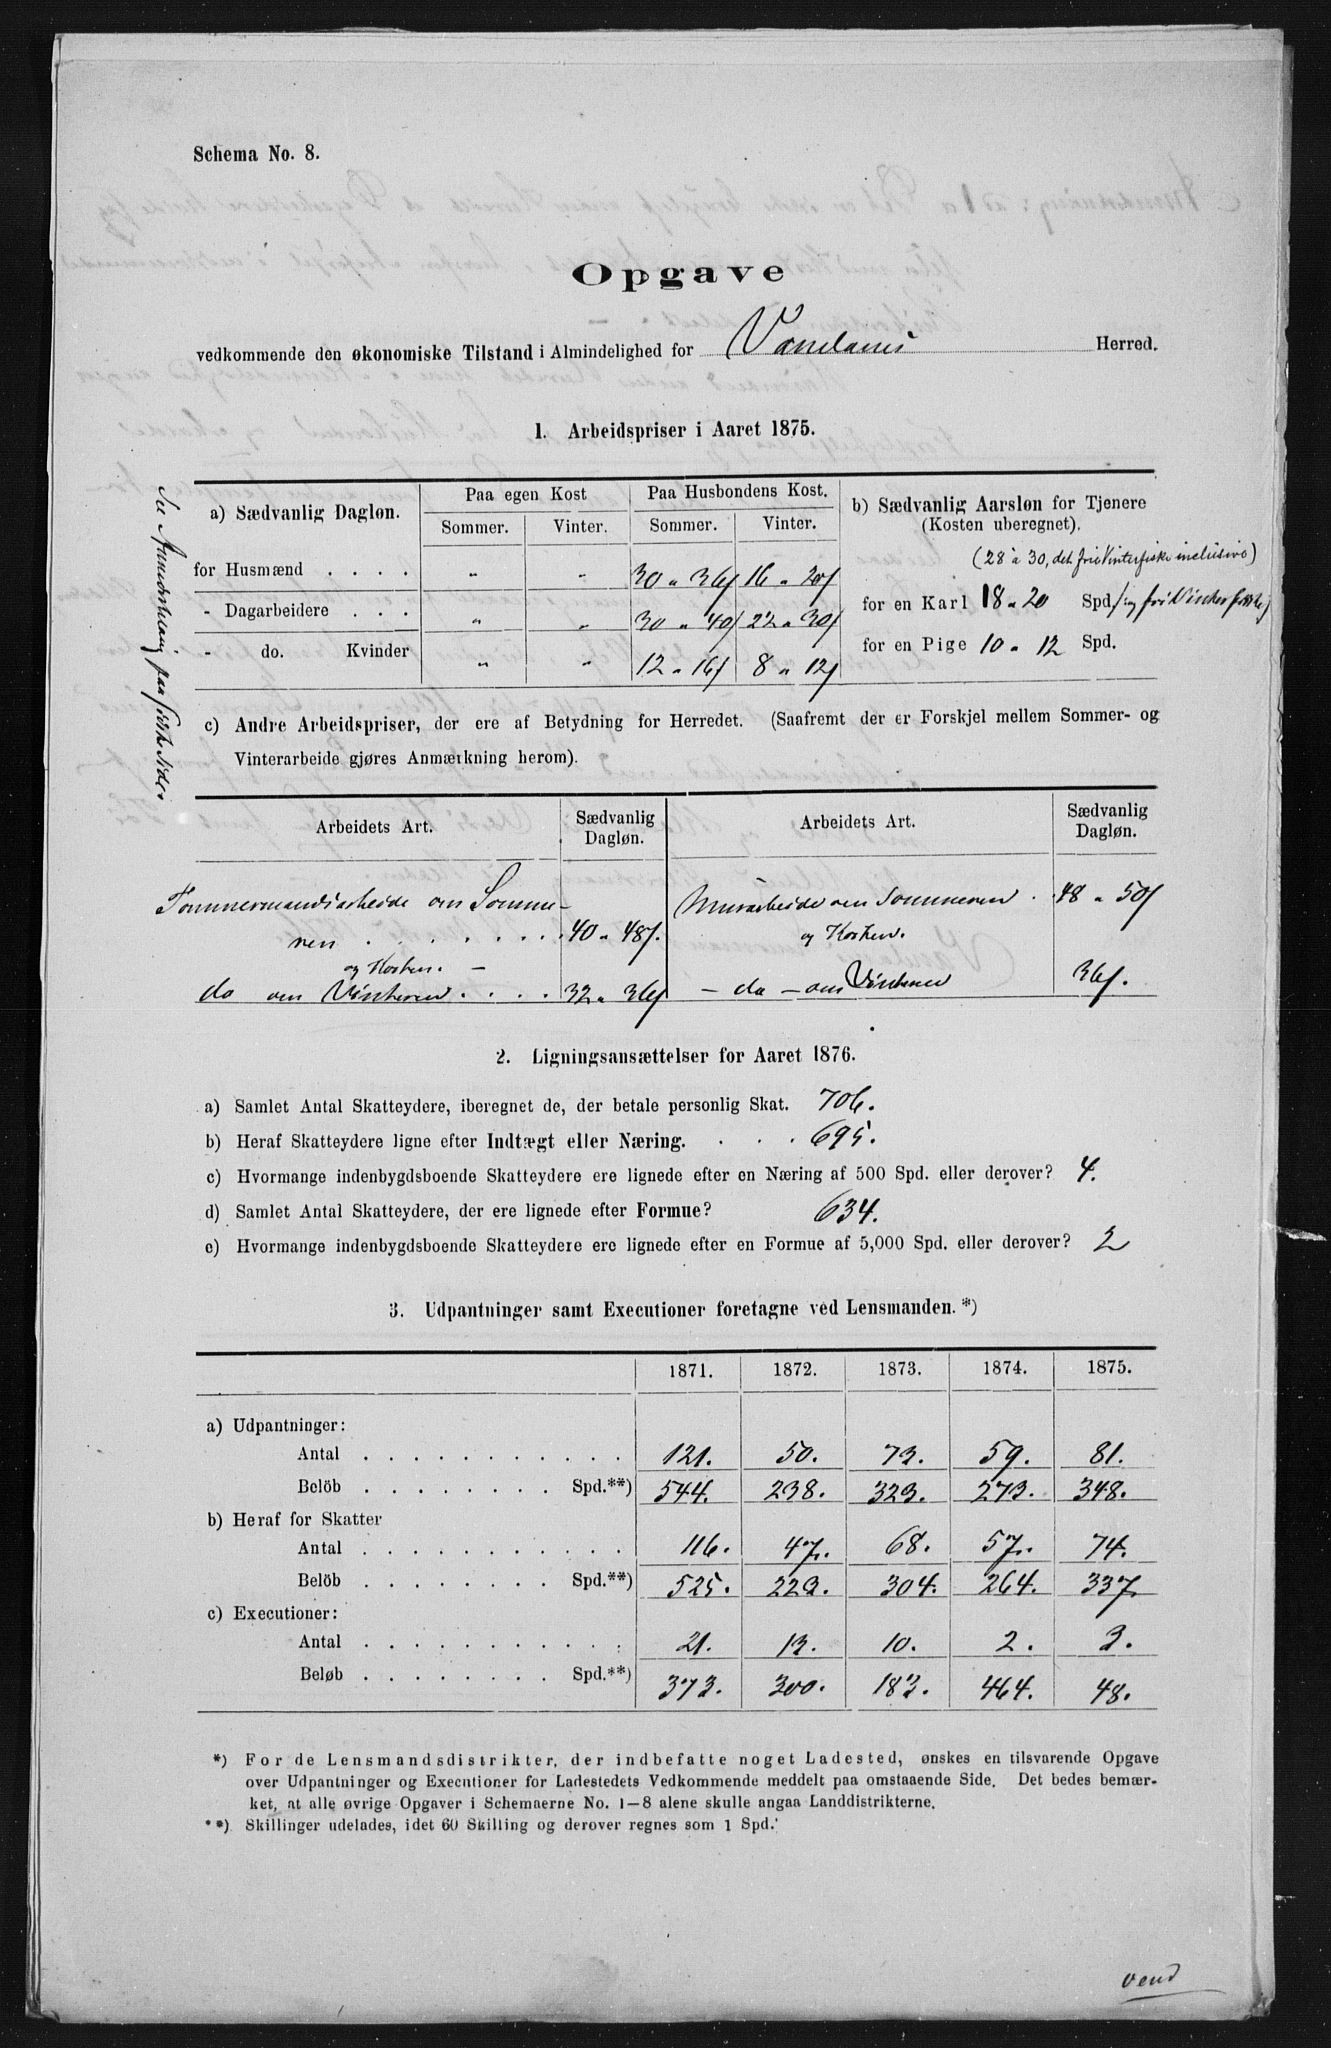 Schema No. 8.
Opgave
vedkommende den økonomiske Tilstand i Almindelighed for Vandanes Herred.
1. Arbeidspriser i Aaret 1875.
a) Sædvanlig Dagløn.
Paa egen Kost
Paa Husbondens Kost.
Sommer. Vinter. Sommer. Vinter.
b) Sædvanlig Aarsløn for Tjenere
(Kosten uberegnet).
(28 à 30, det fri Vinterfiske inclusive)
for Husmænd . . . . " " 30 a 36 16 a 20
- Dagarbeidere . . . " " 30 a 40 22 a 30
- do. Kvinder " " 12 a 16 8 a 12
for en Karl 18 a 20 Spd. og fri Vinterfiske
for en Pige 10 a 12 Spd.
Se Anmerkning paa sidste Side.
c) Andre Arbeidspriser, der ere af Betydning for Herredet. (Saafremt der er Forskjel mellem Sommer- og
Vinterarbeide gjøres Anmærkning herom).
Arbeidets Art. Sædvanlig Dagløn. Arbeidets Art. Sædvanlig Dagløn.
Tømmermandsarbeide om Somme-
ren . . . . . . . 40 a 48
og Kosten. -
Murarbeide om Sommeren . 48 a 50
og Kosten.
do om Vinteren . . . . 32 a 36 - do - om Vinteren 36
2. Ligningsansættelser for Aaret 1876.
a) Samlet Antal Skatteydere, iberegnet de, der betale personlig Skat. 706.
b) Heraf Skatteydere ligne efter Indtægt eller Næring. . . . 695.
c) Hvormange indenbygdsboende Skatteydere ere lignede efter en Næring af 500 Spd. eller derover? 4.
d) Samlet Antal Skatteydere, der ere lignede efter Formue? 634.
e) Hvormange indenbygdsboende Skatteydere ere lignede efter en Formue af 5,000 Spd. eller derover? 2
3. Udpantninger samt Executioner foretagne ved Lensmanden.*)
1871. 1872. 1873. 1874. 1875.
a) Udpantninger:
Antal . . . . . . . . . . . 121. 50. 73. 59. 81.
Belöb . . . . . . . . Spd.**) 544. 238. 323. 273. 348.
b) Heraf for Skatter
Antal . . . . . . . . . . . 116. 47. 68. 57. 74.
Belöb . . . . . . . . Spd.**) 525. 223. 304. 264. 337.
c) Executioner:
Antal . . . . . . . . . . . 21. 13. 10. 2. 3.
Beløb . . . . . . . . Spd.**) 373. 300. 183. 464. 48.
*) For de Lensmandsdistrikter, der indbefatte noget Ladested, ønskes en tilsvarende Opgave
over Udpantninger og Executioner for Ladestedets Vedkommende meddelt paa omstaaende Side. Det bedes bemær-
ket, at alle øvrige Opgaver i Schemaerne No. 1-8 alene skulle angaa Landdistrikterne.
**) Skillinger udelades, idet 60 Skilling og derover regnes som 1 Spd.
vend